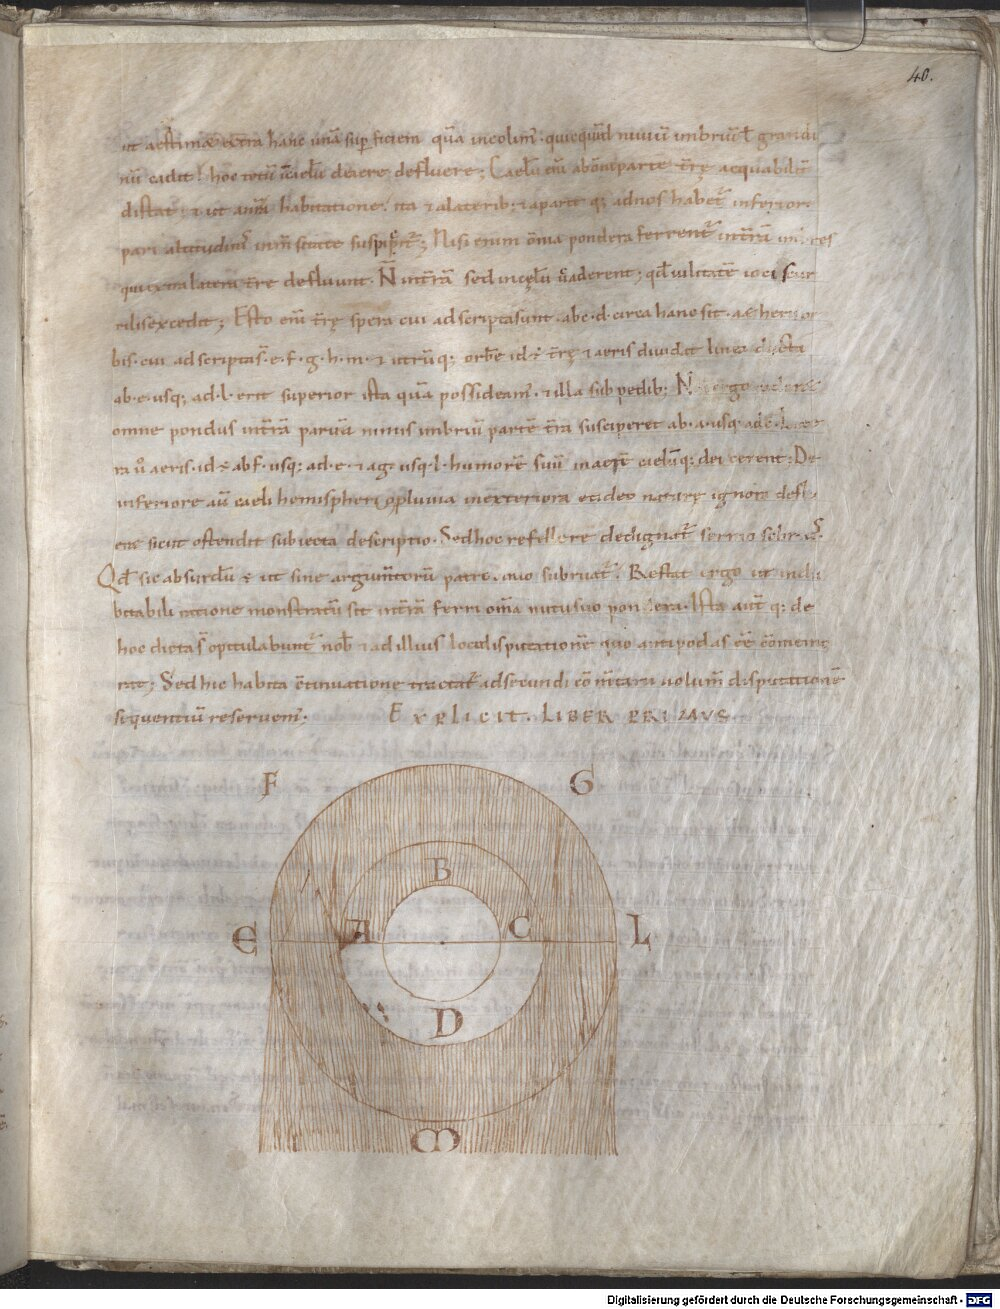 40.
ut aestimatur extra hanc unā suꝑficiem quā incolim᷒. quicquid nimiū imbriū ł grandi
nū cadit. hoc totū in celū de aere defluere; Caelū enī ab om̄i parte t̄rę aequabilit̄
distat. & ut a nr̄a habitatione. ita & a laterib; & a parte q; ad nos habet̄ inferior.
pari altitudinis inm̄sitate suspicit̄; Nisi enim om̄a pondera ferrent̄ in t̄rā
qui extra latera t̄re defluunt. N̄ in t̄rā sed in celū caderent; qd̄ vilitatē ioci scur
rilis excedit; Esto enī t̄rę spera cui adscripta sunt. abc.d. circa hanc sit. aeris or
bis. cui adscripta s̄. e.f.g.h.m. & utrūq; orbē id ē t̄rę & aeris dividit linea ducta
ab.e.usq; ad.l. erit superior ista quā possideam᷒. & illa sub pedib; N
omne pondus in t̄rā parvā nimis imbriū partē t̄ra susciperet ab.a.usq. ad c. late
ra ū aeris. id ē ab f. usq; ad.e. & a g. usq. l. humorē suū in aerē cielūq; deicerent; De
inferiore aū caeli hemispherio pluvia in exteriora & ideo naturę ignota deflu
eret sicut ostendit subiecta descriptio. Sed hoc refellere dedignat̄ sermo sobrius.
Qd̄ sic absurdū ē ut sine argum̄torū patrocinio subruat̄. Restat ergo ut indu
bitabili ratione monstratū sit in t̄rā ferri om̄a nutu suo pondera. Ista aut̄ q; de
hoc dicta s̄ opitulabunt̄ nob̄ & ad illius loci disputationē quo antipodas eē cōmemo
rat; Sed hic habita cōtinuatione tractat᷒ ad secundi cōm̄tarii volum̄ disputationē
sequentiū reservem᷒.
EXPLICIT. LIBER PRIMVS
F G
B
E A C L
D
M
Digitalisierung gefördert durch die Deutsche Forschungsgemeinschaft - DFG